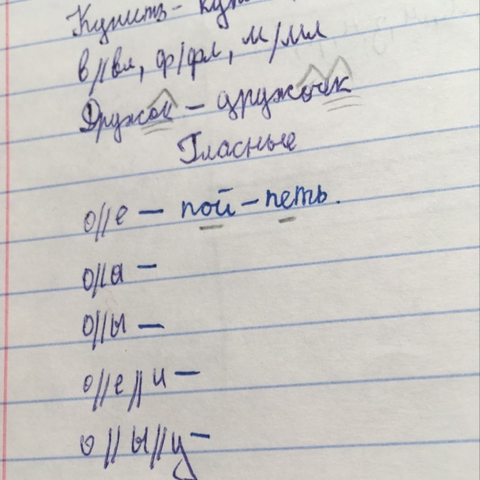 Купить - куп
в//вл, ф/фл, м/мл
Дружок - дружочек
Гласные
о//е - пой - петь.
о//а -
о//ы -
о//е//и -
о//ы//у -